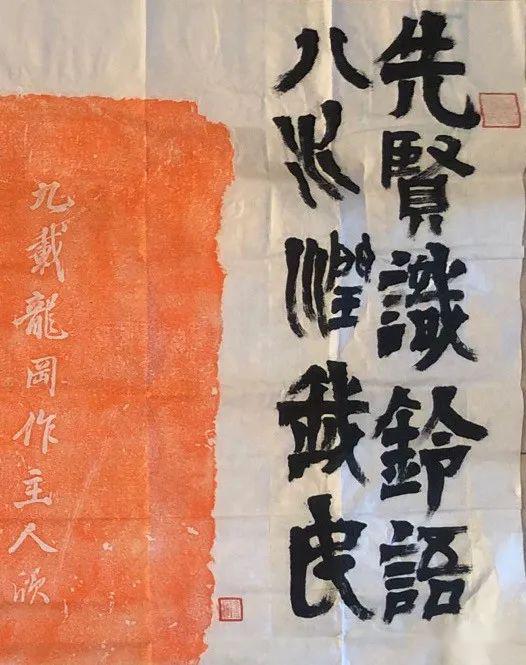 先賢識鈴語
八水潤我民
九載龍岡作主人欣